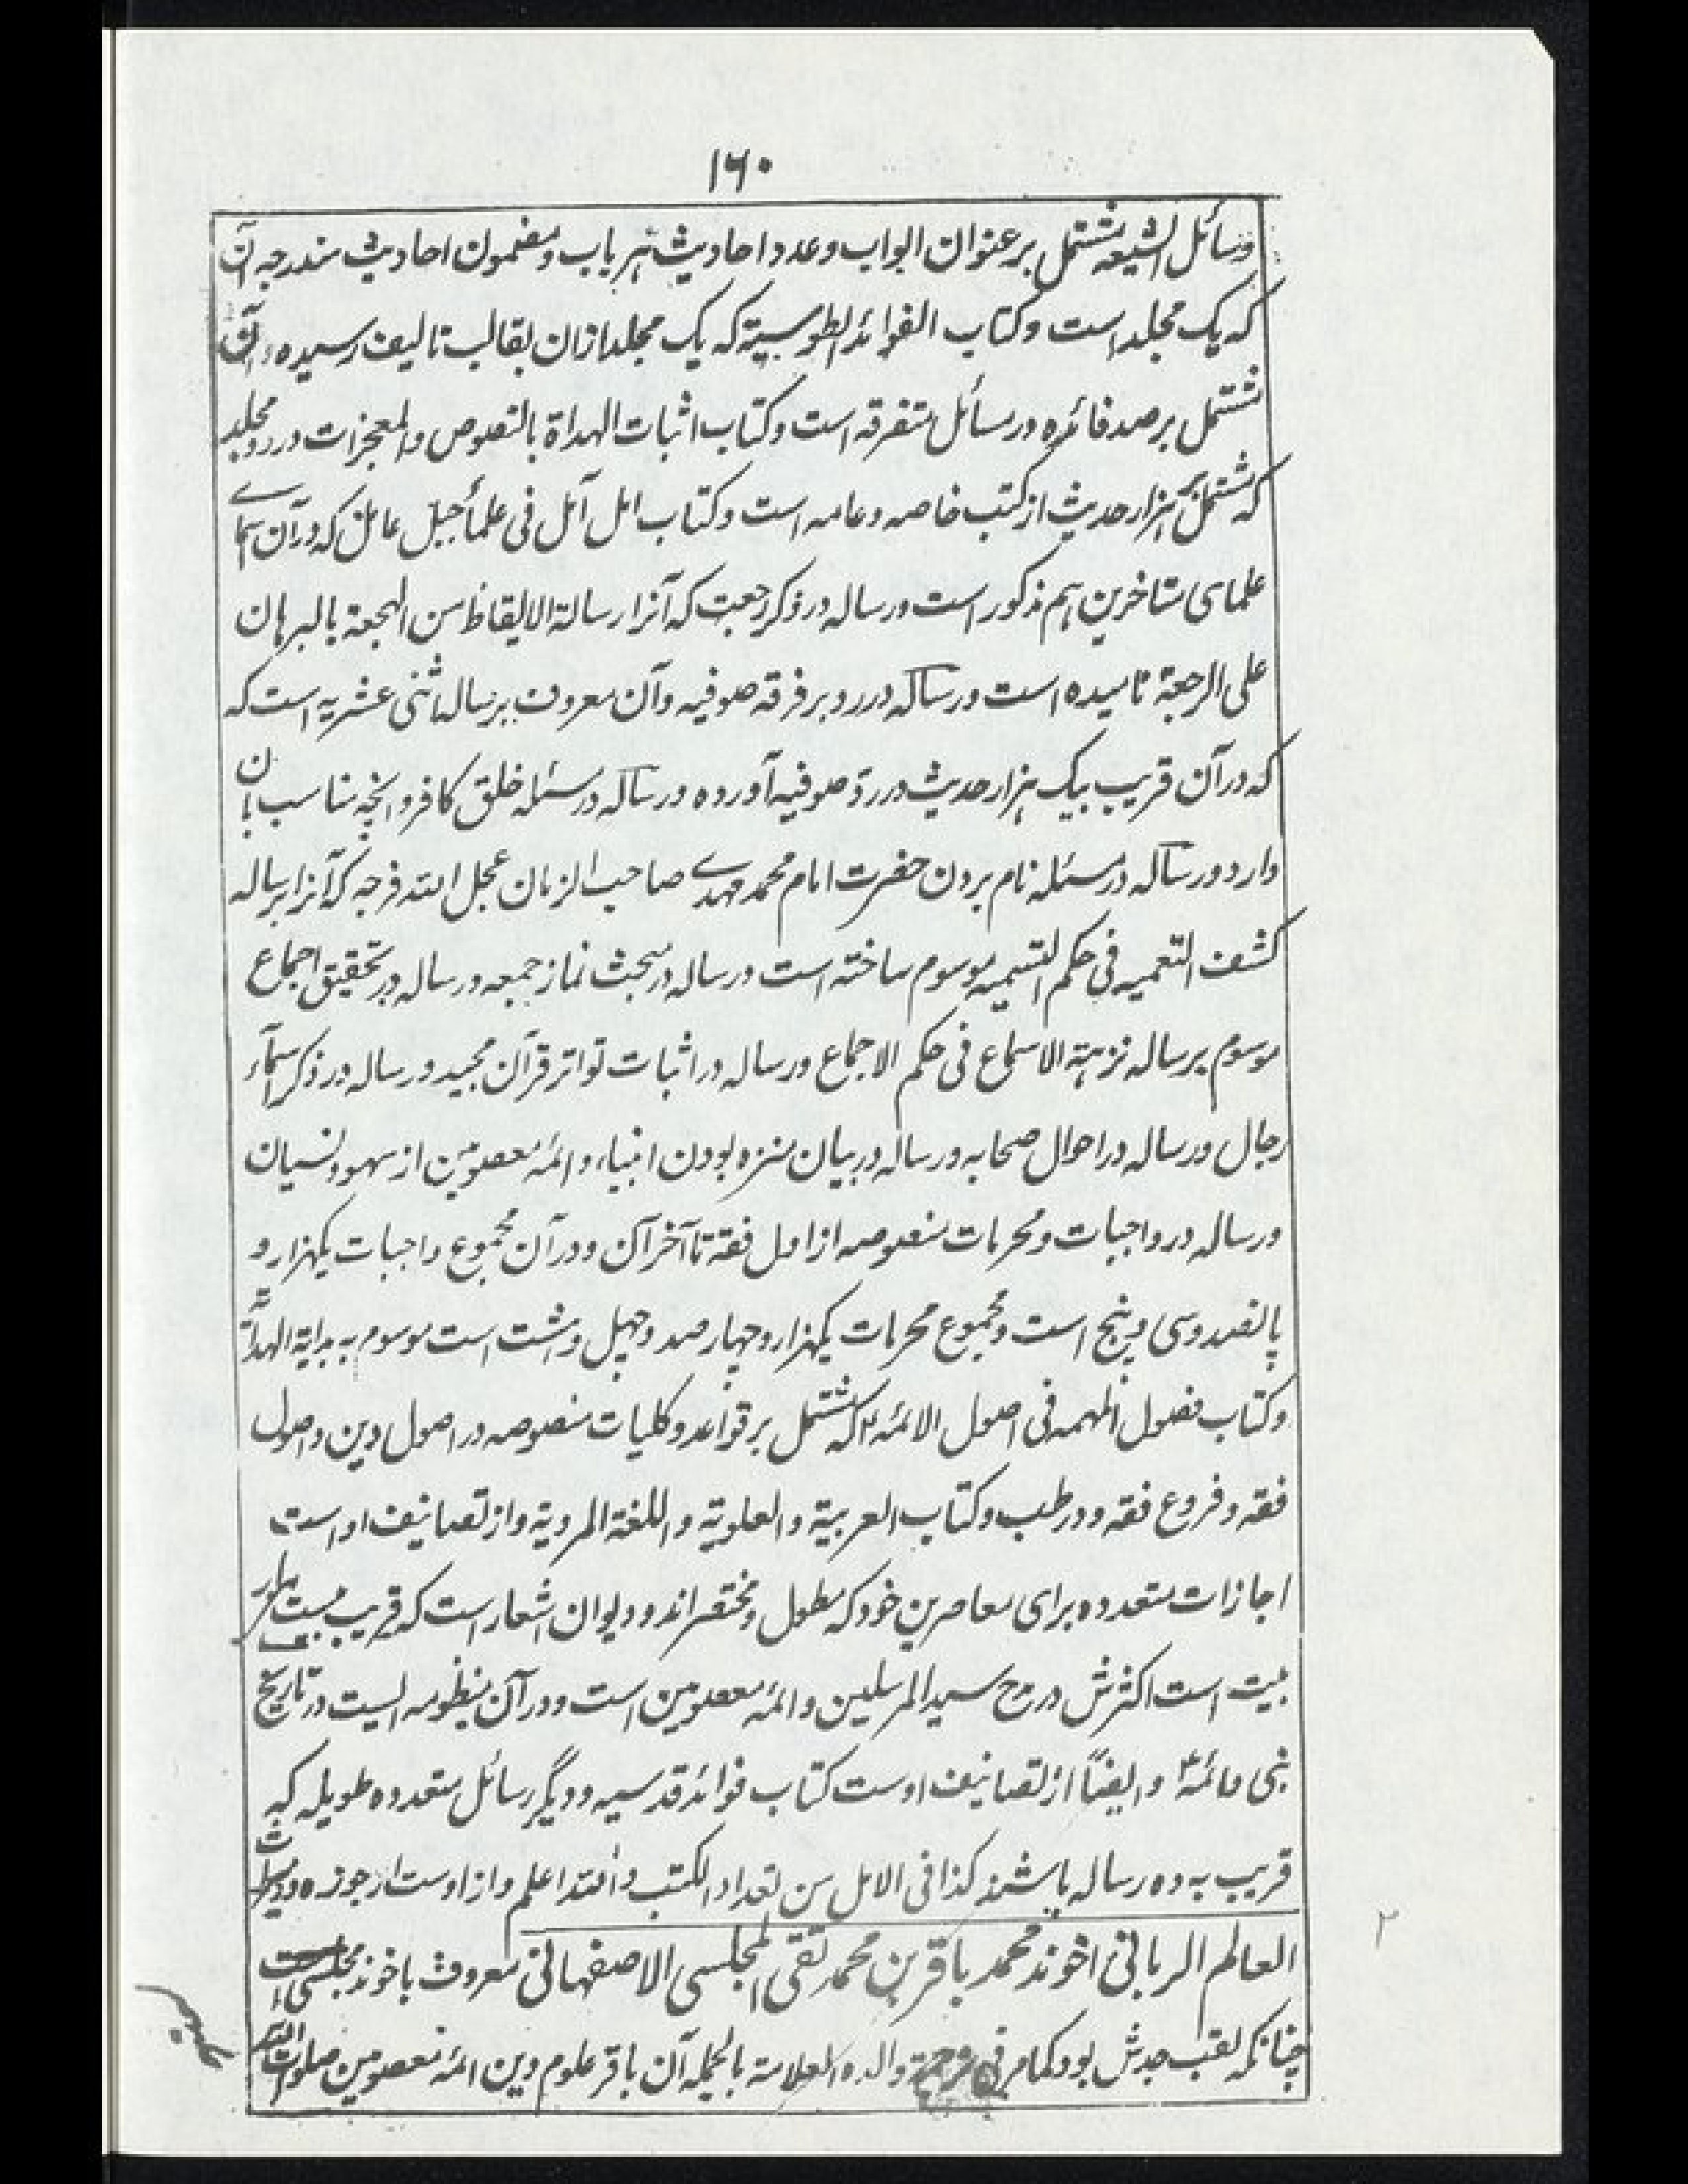 ۱۶۰
وسائل الشیعه مشتمل بر عنوان ابواب و عدد احادیث هر باب و مضمون احادیث مندرجه آن
که یک مجلد است و کتاب الفوائد الطوسیة که یک مجلد ازان بقالب تالیف رسیده و آن
مشتمل بر صد فائده در مسائل متفرقه است و کتاب اثبات الهداة بالنصوص والمعجزات در دو مجلد
که مشتمل بر هزار حدیث از کتب خاصه و عامه است و کتاب امل آمل فی علماء جبل عامل که در آن اسمای
علمای متاخرین هم مذکور است و رساله در ذکر رجعت که آنرا رسالة الایقاظ من الهجعة بالبرهان
علی الرجعة نامیده است و رساله در رد بر فرقه صوفیه و آن معروف برساله اثنی عشریه است که
که در آن قریب بیک هزار حدیث در رد صوفیه آورده و رساله در مسئله خلق کافر و آنچه مناسب بان
وارد و رساله در مسئله نام بردن حضرت امام محمد مهدی صاحب الزمان عجل الله فرجه که آنرا برساله
کشف التعمیه فی حکم التسمیه موسوم ساخته است و رساله در مبحث نماز جمعه و رساله در تحقیق اجماع
موسوم برساله نزهة الاسماع فی حکم الاجماع و رساله در اثبات تواتر قرآن مجید و رساله در ذکر اسماء
رجال و رساله در احوال صحابه و رساله در بیان منزه بودن انبیاء و ائمه معصومین از سهو و نسیان
و رساله در واجبات و محرمات منصوصه از اول فقه تا آخر آن و در آن مجموع واجبات یکهزار و
پانصد و سی و پنج است و مجموع محرمات یکهزار و چهار صد و چهل و هشت است موسوم به بدایة الهدایة
و کتاب فصول المهمه فی اصول الائمه ع که مشتمل بر قواعد و کلیات منصوصه در اصول دین و اصول
فقه و فروع فقه و در طب و کتاب العربیة و العلویة و اللغة المرویة و از تصانیف او است
اجازات متعدده برای معاصرین خود که مطول و مختصر اند و دیوان اشعار است که قریب بیست هزار
بیت است اکثرش در مدح سید المرسلین و ائمه معصومین است و در آن منظومه ایست در تاریخ
نبی و ائمه ع و ایضاً از تصانیف اوست کتاب فوائد قدسیه و دیگر رسائل متعدده طویله که
قریب به ده رساله باشند کذا فی الامل من تعداد الکتب و الله اعلم و از اوست ارجوزه
العالم الربانی اخوند محمد باقر بن محمد تقی المجلسی الاصفهانی معروف باخوند مجلسی است
چنانکه لقب جدش بود کما مر فی ترجمة والده العلامة بالجمله آن باقر علوم دین ائمه معصومین صلوات الله
۲